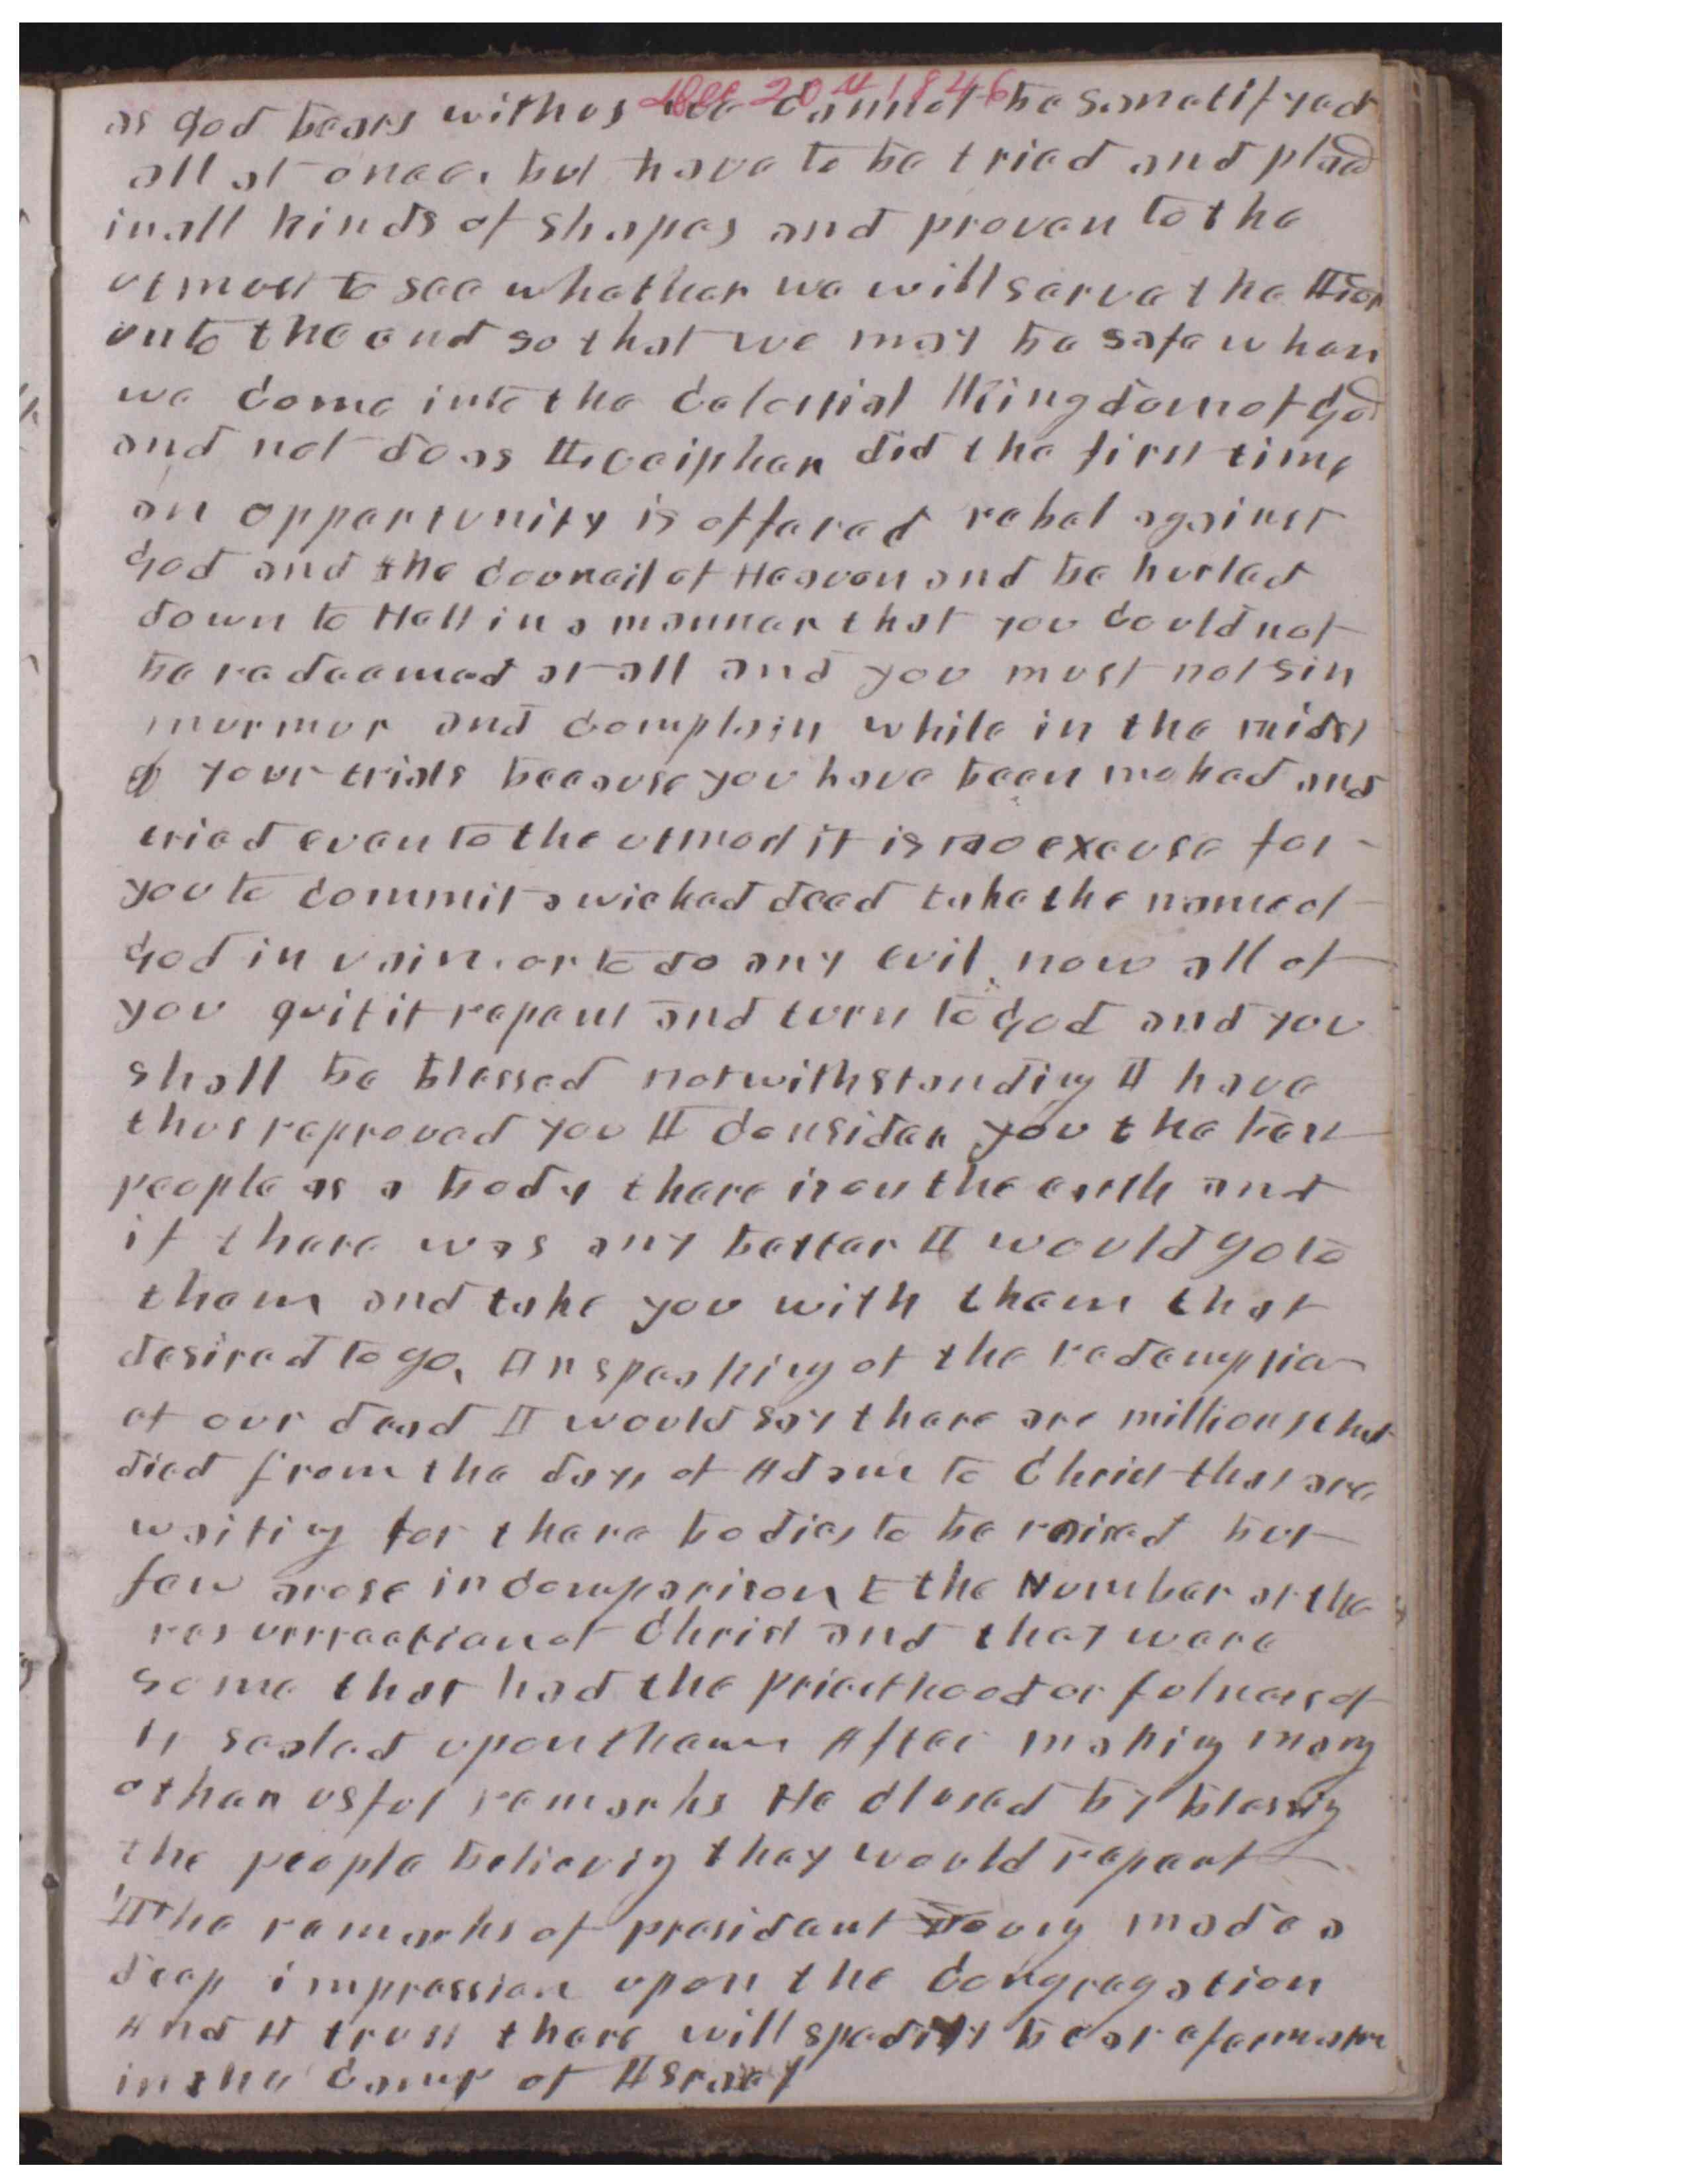 Dec 20th 1846
as god bears with us we cannot be sanctifyed
all at once. but have to be tried and placed
in all kinds of shapes and proven to the
utmost to see whether we will serve the Lord
unto the end so that we may be safe when
we come into the celestial Kingdom of God
and not do as Luceipher did the first time
an oppertunity is offered rebel against
God and the counceil of Heaven and be hurled
down to Hell in a manner that you could not
be redeemed at all and you must not sin
murmur and complain while in the midst
of your trials because you have been maked and
tried even to the utmost it is no excuse for
you to commit a wicked deed take the name of
God in vain. or to do any evil now all of
you quit it repent and turn to God and you
shall be blessed notwithstanding I have
thus reproved you I consider you the best
people as a body there is on the earth and
if there was any better I would go to
them and take you with them that
desired to go, In speaking of the redemption
of our dead I would say there are millions that
died from the days of Adam to Christ that are
waiting for there bodies to be raised but
few arose in comparison to the Number at the
resurrection of Christ and they were
some that had the priesthood or fulness of
it sealed upon them After making many
other usful remarks He closed by blessing
the people believing they would repent
The remarks of president Young made a
deep impression upon the congregation
And I trust there will spedily be a reformation
in the camp of Israel